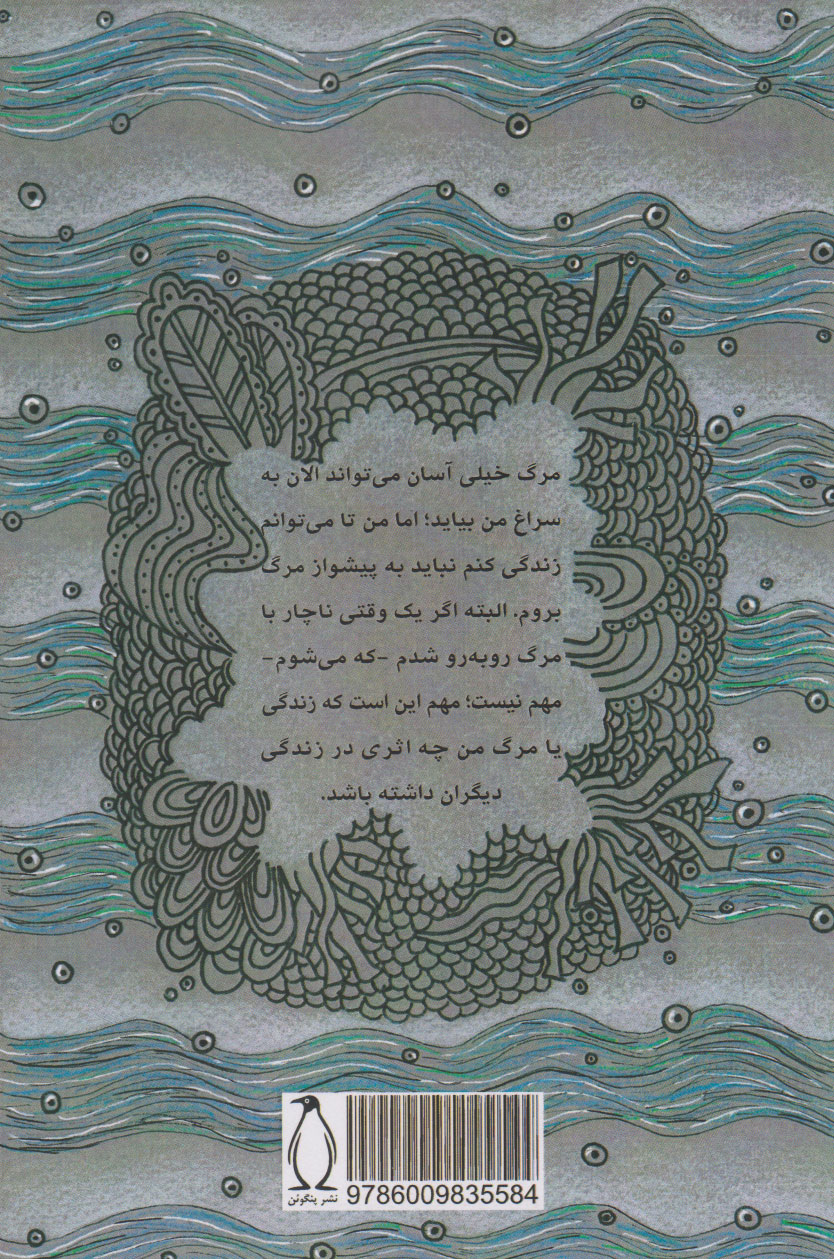 مرگ خیلی آسان می‌تواند الان به
سراغ من بیاید؛ اما من تا می‌توانم
زندگی کنم نباید به پیشواز مرگ
بروم. البته اگر یک وقتی ناچار با
مرگ روبه‌رو شدم -که می‌شوم-
مهم نیست؛ مهم این است که زندگی
یا مرگ من چه اثری در زندگی
دیگران داشته باشد.
نشر پنگوئن
9786009835584